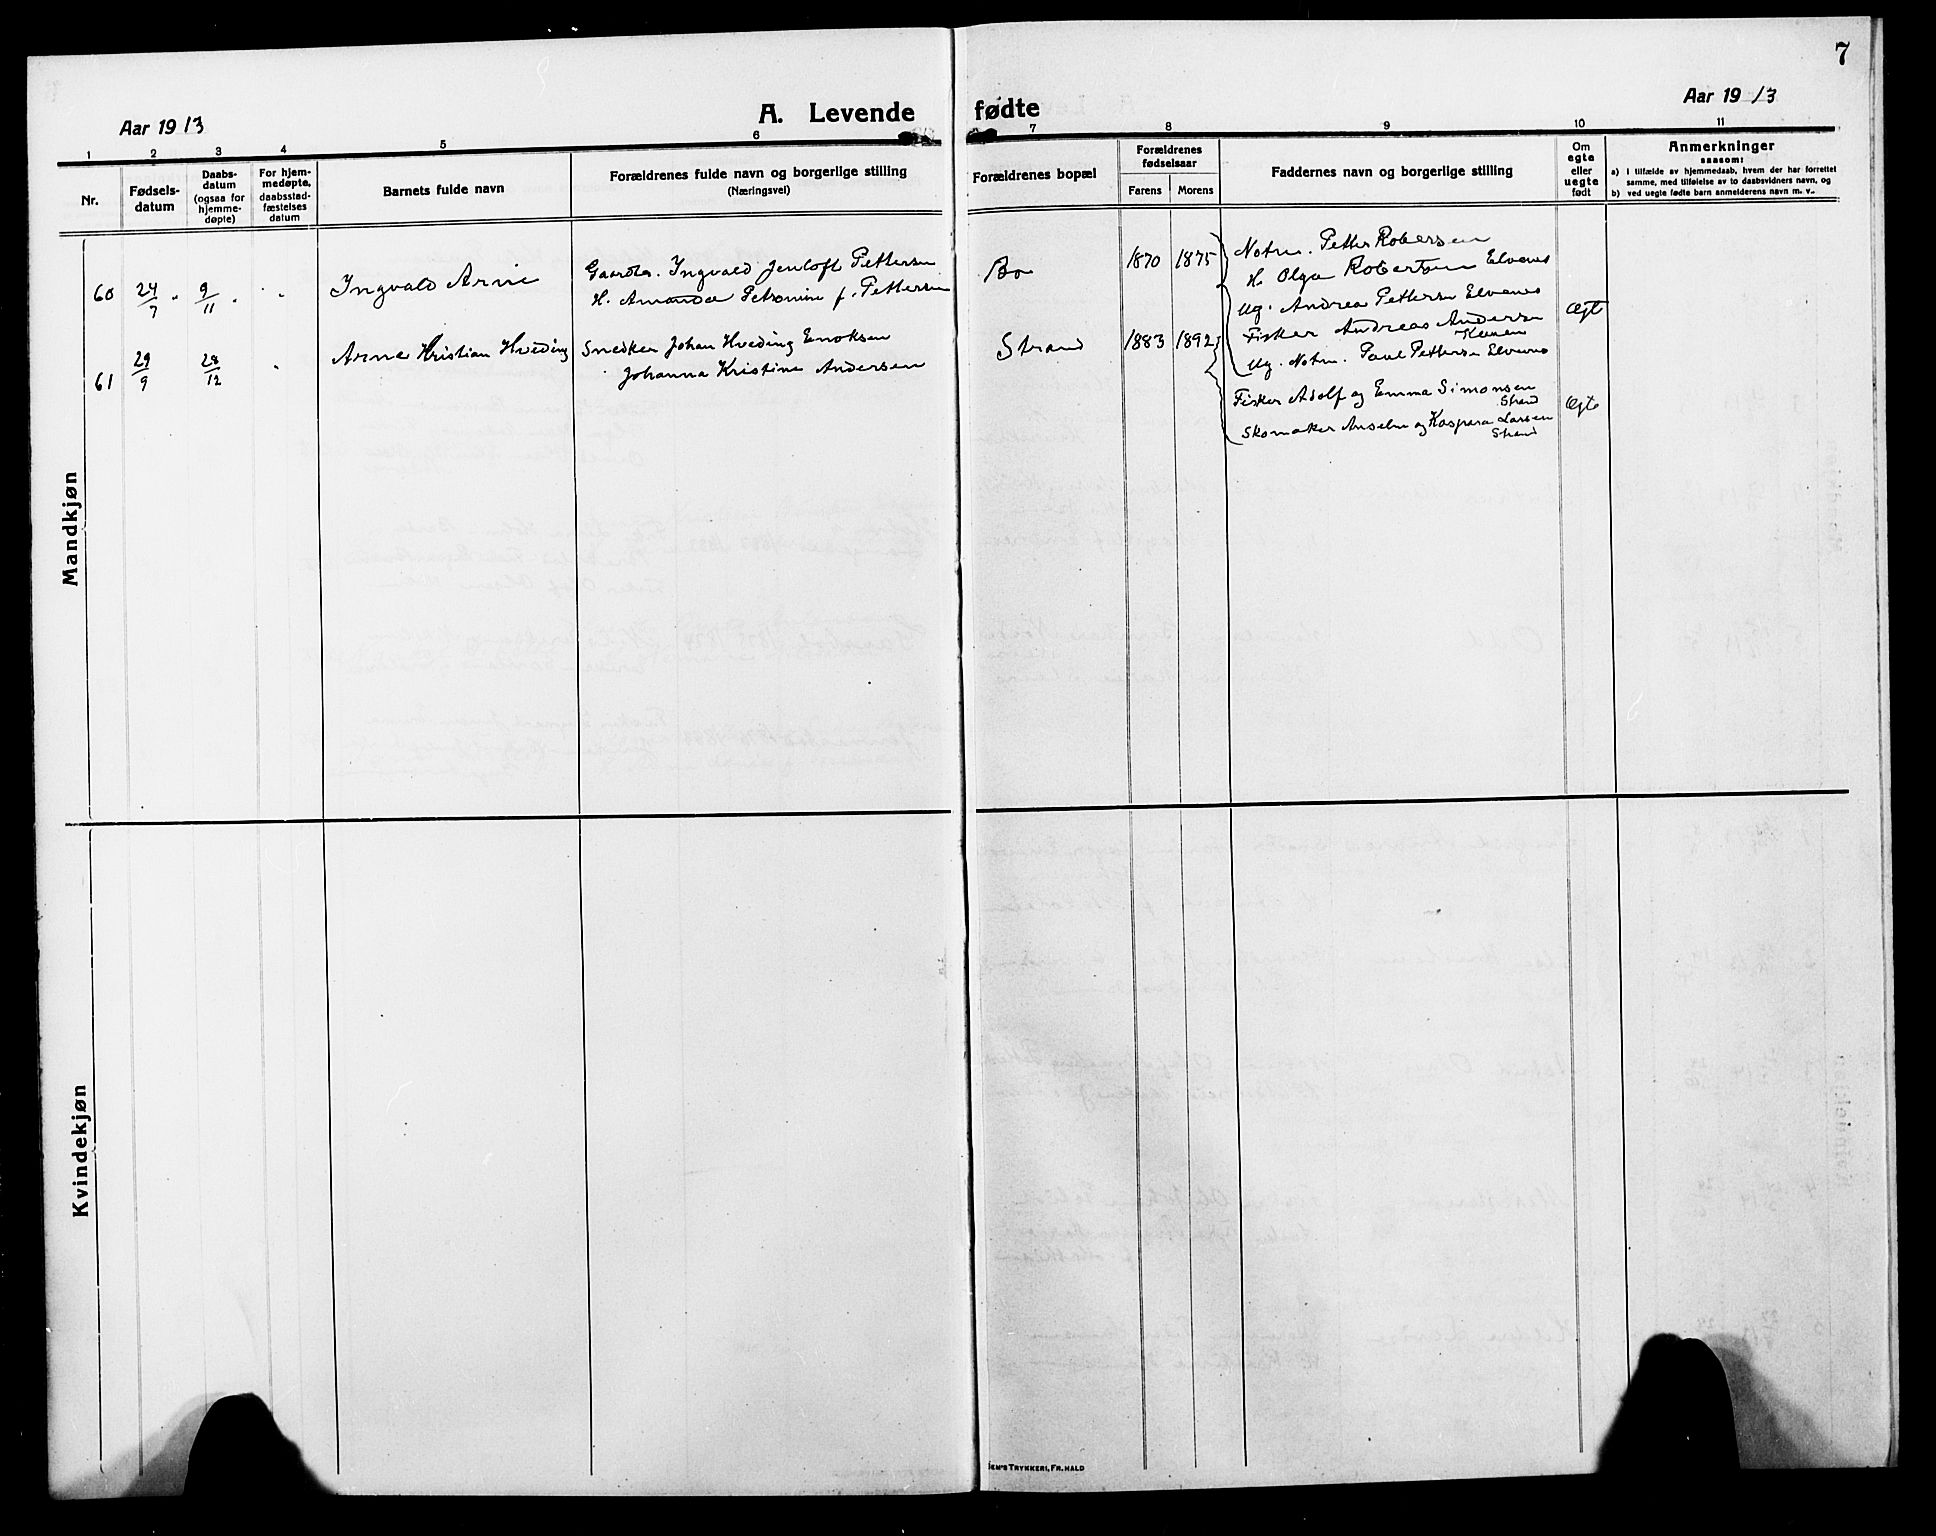 7
Aar 1913
A. Levende fødte
Aar 1913
1 2 3 4 5 6 7 8 9 10 11
Nr.
Fødsels-
datum
Daabs-
datum
(ogsaa for
hjemme-
døpte)
For hjem-
medøpte,
daabsstad-
fæstelses
datum
Barnets fulde navn
Forældrenes fulde navn og borgerlige stilling
(Næringsvei)
Forældrenes bopæl
Forældrenes
fødselsaar
Farens Morens
Faddernes navn og borgerlige stilling
Om
egte
eller
uegte
født
Anmerkninger
saasom:
a) i tilfælde av hjemmedaab, hvem der har forrettet
samme, med tilføielse av to daabsvidners navn, og
b) ved uegte fødte barn anmelderens navn m. v..
Mandkjøn
60 24/7 " 9/11 " " "
Ingvald Arne
Gaardbr. Ingvald Jenloft Pettersen
H. Amanda Petronine f. Pettersen
Bo
1870 1875
Notm. Petter Robersen
H. Olga Robertsen Elvenes
Ug. Andrea Pettersen Elvenes
Fisker Andreas Andersen
Konen
Ug. Notm. Paul Pettersen Elvenes
Ægt
61 29/9 28/12 "
Arne Kristian Hveding
Snedker Johan Hveding Enoksen
Johanna Kristine Andersen
Strand
1883 1892
Fisker Adolf og Emma Simonsen
Strand
Skomaker Anselm og Kaspara Larsen
Strand
Ægte
Kvindekjøn
SEM'S TRYKKERI, FR.HALD